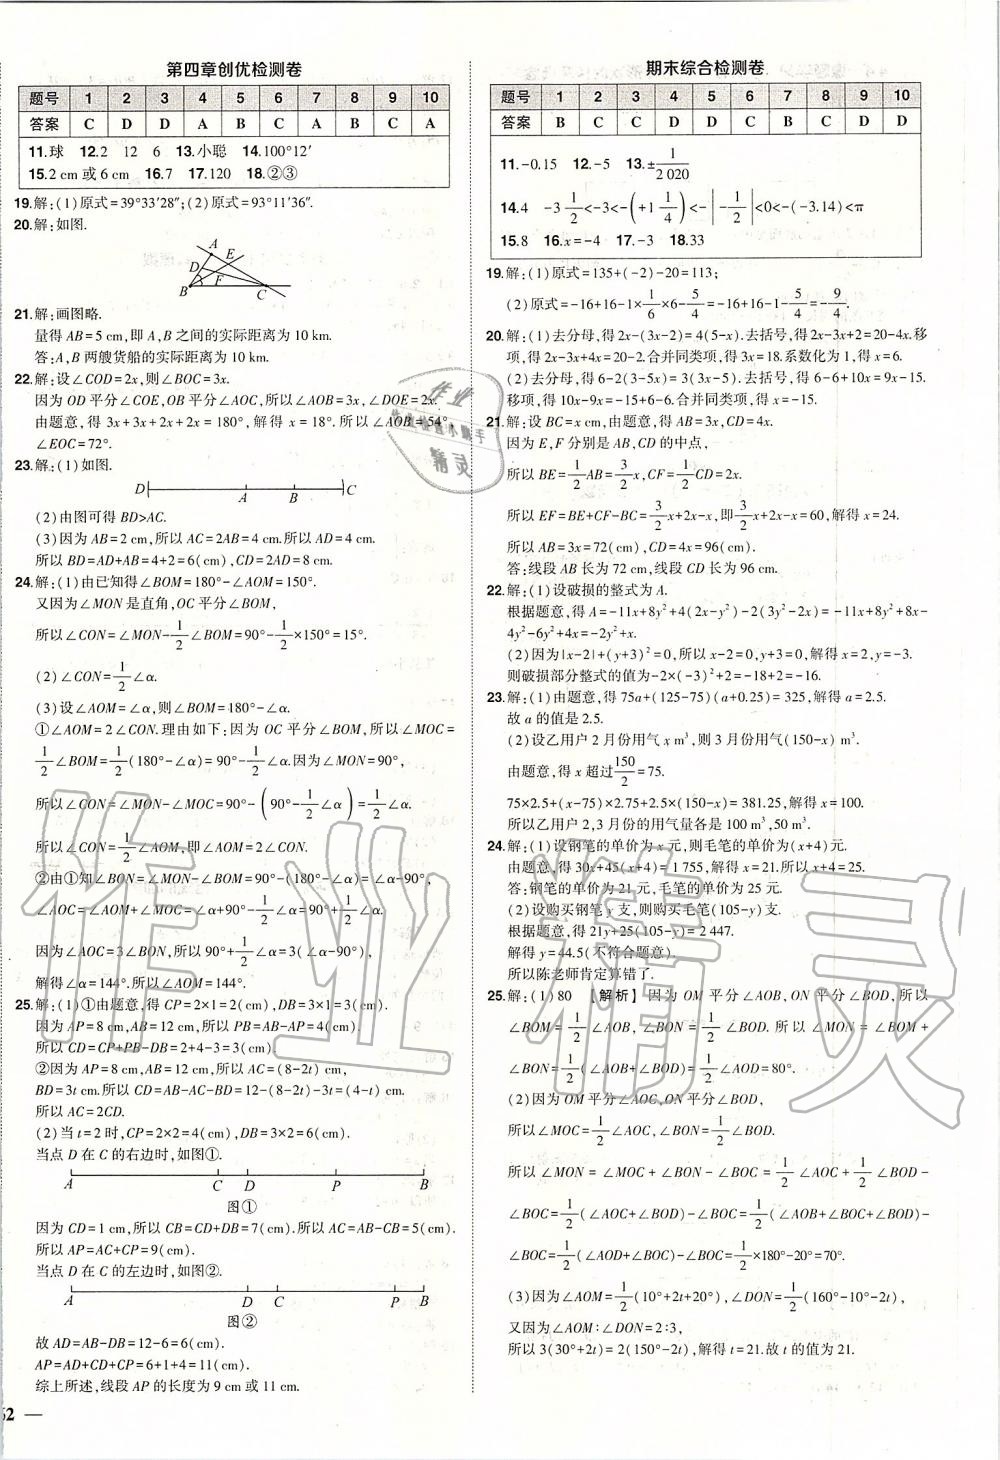 第四章创优检测卷
题号 1 2 3 4 5 6 7 8 9 10
答案 C D D A B C A B C A
11.球 12.2 12 6 13.小聪 14.100°12′
15.2 cm 或 6 cm 16.7 17.120 18.②③
19.解:(1)原式=39°33′28″;(2)原式=93°11′36″.
20.解:如图.
A
E
D
F
B
C
21.解:画图略.
量得 AB=5 cm,即 A,B 之间的实际距离为 10 km.
答:A,B 两艘货船的实际距离为 10 km.
22.解:设∠COD=2x,则∠BOC=3x.
因为 OD 平分∠COE,OB 平分∠AOC,所以∠AOB=3x,∠DOE=2x.
由题意,得 3x+3x+2x+2x=180°,解得 x=18°.所以∠AOB=54°,
∠EOC=72°.
23.解:(1)如图.
D A B C
(2)由图可得 BD>AC.
(3)因为 AB=2 cm,所以 AC=2AB=4 cm.所以 AD=4 cm.
所以 BD=AD+AB=4+2=6(cm),CD=2AD=8 cm.
24.解:(1)由已知得∠BOM=180°-∠AOM=150°.
又因为∠MON 是直角,OC 平分∠BOM,
所以∠CON=∠MON-1/2∠BOM=90°-1/2×150°=15°.
(2)∠CON=1/2∠α.
(3)设∠AOM=∠α,则∠BOM=180°-∠α.
①∠AOM=2∠CON.理由如下:因为 OC 平分∠BOM,所以∠MOC=
1/2∠BOM=1/2(180°-∠α)=90°-1/2∠α.因为∠MON=90°,
所以∠CON=∠MON-∠MOC=90°-(90°-1/2∠α)=1/2∠α.
所以∠CON=1/2∠AOM,即∠AOM=2∠CON.
②由①知∠BON=∠MON-∠BOM=90°-(180°-∠α)=∠α-90°,
∠AOC=∠AOM+∠MOC=∠α+90°-1/2∠α=90°+1/2∠α.
因为∠AOC=3∠BON,所以 90°+1/2∠α=3(∠α-90°).
解得∠α=144°.所以∠AOM=144°.
25.解:(1)①由题意,得 CP=2×1=2(cm),DB=3×1=3(cm).
因为 AP=8 cm,AB=12 cm,所以 PB=AB-AP=4 cm.
所以 CD=CP+PB-DB=2+4-3=3(cm).
②因为 AP=8 cm,AB=12 cm,所以 AC=(8-2t) cm.
BD=3t cm.所以 CD=AB-AC-BD=12-(8-2t)-3t=(4-t) cm.
所以 AC=2CD.
(2)当 t=2 时,CP=2×2=4(cm),DB=3×2=6(cm).
当点 D 在 C 的右边时,如图①.
A C D P B
图①
因为 CD=1 cm,所以 CB=CD+DB=7(cm).所以 AC=AB-CB=5(cm).
所以 AP=AC+CP=9(cm).
当点 D 在 C 的左边时,如图②.
A D C P B
图②
故 AD=AB-DB=12-6=6(cm).
AP=AD+CD+CP=6+1+4=11(cm).
综上所述,线段 AP 的长度为 9 cm 或 11 cm.
期末综合检测卷
题号 1 2 3 4 5 6 7 8 9 10
答案 B C C D D C B C D D
11.-0.15 12.-5 13.±1/2 020
14.4 -3 1/2<-3<-(+1 1/4)<-|-1/2|<0<-(-3.14)<π
15.8 16.x=-4 17.-3 18.33
19.解:(1)原式=135+(-2)-20=113;
(2)原式=-16+16-1×1/6×6-5/4=-16+16-1-5/4=-9/4.
20.解:(1)去分母,得 2x-(3x-2)=4(5-x).去括号,得 2x-3x+2=20-4x.移
项,得 2x-3x+4x=20-2.合并同类项,得 3x=18.系数化为 1,得 x=6.
(2)去分母,得 6-2(3-5x)=3(3x-5).去括号,得 6-6+10x=9x-15.
移项,得 10x-9x=-15+6-6.合并同类项,得 x=-15.
21.解:设 BC=x cm,由题意,得 AB=3x,CD=4x.
因为 E,F 分别是 AB,CD 的中点,
所以 BE=1/2AB=3/2x,CF=1/2CD=2x.
所以 EF=BE+CF-BC=3/2x+2x-x,即3/2x+2x-x=60,解得 x=24.
所以 AB=3x=72(cm),CD=4x=96(cm).
答:线段 AB 长为 72 cm,线段 CD 长为 96 cm.
22.解:(1)设破损的整式为 A.
根据题意,得 A=-11x+8y²+4(2x-y²)-2(3y²-2x)=-11x+8y²+8x-
4y²-6y²+4x=-2y²+x.
(2)因为|x-2|+(y+3)²=0,所以 x-2=0,y+3=0.解得 x=2,y=-3.
则破损部分整式的值为-2×(-3)²+2=-18+2=-16.
23.解:(1)由题意,得 75a+(125-75)(a+0.25)=325,解得 a=2.5.
故 a 的值是 2.5.
(2)设乙用户 2 月份用气 x m³,则 3 月份用气(150-x) m³.
由题意,得 x 超过150/2=75.
75×2.5+(x-75)×2.75+2.5×(150-x)=381.25,解得 x=100.
所以乙用户 2,3 月份的用气量各是 100 m³,50 m³.
24.解:(1)设钢笔的单价为 x 元,则毛笔的单价为(x+4)元.
由题意,得 30x+45(x+4)=1 755,解得 x=21.所以 x+4=25.
答:钢笔的单价为 21 元,毛笔的单价为 25 元.
(2)设购买钢笔 y 支,则购买毛笔(105-y)支.
根据题意,得 21y+25(105-y)=2 447.
解得 y=44.5(不符合题意).
所以陈老师肯定算错了.
25.解:(1)80 【解析】因为 OM 平分∠AOB,ON 平分∠BOD,所以
∠BOM=1/2∠AOB,∠BON=1/2∠BOD.所以∠MON=∠BOM+
∠BON=1/2(∠AOB+∠BOD)=1/2∠AOD=80°.
(2)因为 OM 平分∠AOC,ON 平分∠BOD,
所以∠MOC=1/2∠AOC,∠BON=1/2∠BOD.
所以∠MON=∠MOC+∠BON-∠BOC=1/2∠AOC+1/2∠BOD-
∠BOC=1/2(∠AOC+∠BOD)-∠BOC=1/2(∠AOB+∠BOC+∠BOD)-
∠BOC=1/2(∠AOD+∠BOC)-∠BOC=1/2×180°-20°=70°.
(3)因为∠AOM=1/2(10°+2t+20°),∠DON=1/2(160°-10°-2t),
又因为∠AOM∶∠DON=2∶3,
所以 3(30°+2t)=2(150°-2t),解得 t=21.故 t 的值为 21.
62 —
作业精灵